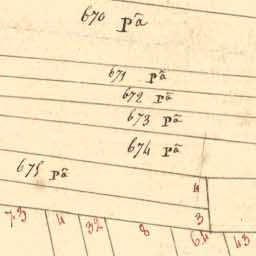 670 pᵃ
671 pᵃ
672 pᵃ
673 pᵃ
674 pᵃ
675 pᵃ
4
3
73 4 32 8 64 43